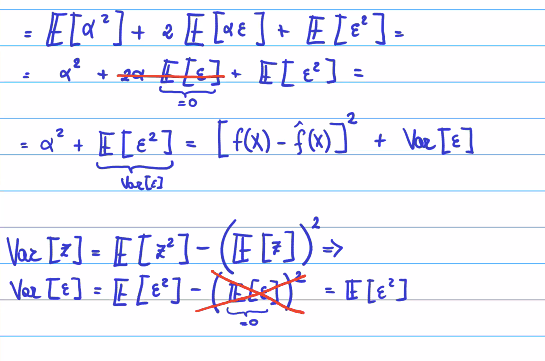 = 𝔼[α²] + 2 𝔼[αε] + 𝔼[ε²] =
= α² + 2α 𝔼[ε] + 𝔼[ε²] =
=0
= α² + 𝔼[ε²] = [f(X) - f̂(X)]² + Var[ε]
Var[ε]
Var[Z] = 𝔼[Z²] - (𝔼[Z])² ⇒
Var[ε] = 𝔼[ε²] - (𝔼[ε])² = 𝔼[ε²]
=0